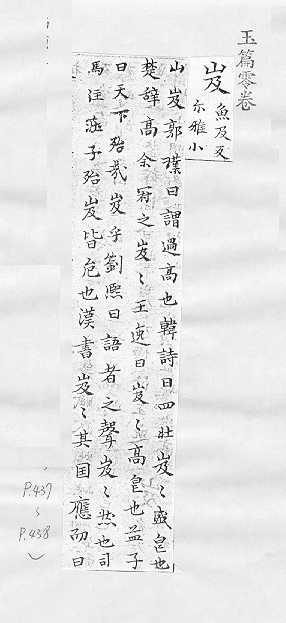 玉篇零卷
岌 魚及反
尒雅小
山岌郭璞曰謂過高也韓詩曰四牡岌〻盛皃也
楚辭高余冠之岌〻王逸曰岌〻高皃也孟子
曰天下殆哉岌乎劉熙曰語者之聲岌〻然也司
馬注莊子殆岌皆危也漢書岌〻其国應劭曰
P.437
~
P.438